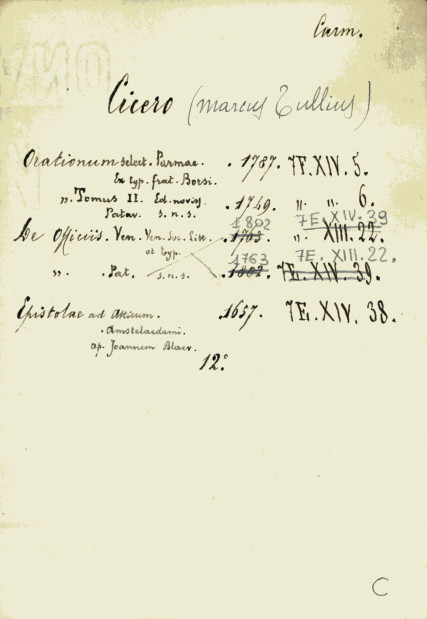 Carm.
Cicero (Marcus Tullius)
Orationum select. Parmae. . 1787. 7F. XIV. 5.
Ex typ. frat. Borsi.
„ Tomus II. Ed. noviss. . 1749. „ „ 6.
Patav. s. n. s.
1802 7E. XIV. 39
De Officiis. Ven. Ven. Soc. Litt. . 1763. „ XIII. 22.
et typ. 1763 7E. XIII. 22.
„ . Pat. s. n. s. . 1802. 7E. XIV. 39.
Epistolae ad Atticum. . 1657. 7E. XIV. 38.
. Amstelaedami.
ap. Joannem Blaev.
12°
C